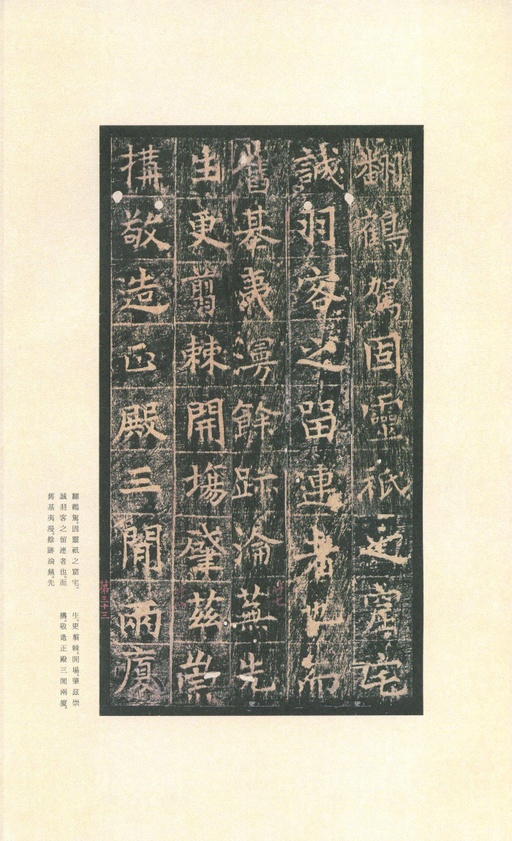 翻鶴駕固靈祇之窟宅
誠羽客之留連者也而
舊基夷漫餘跡淪蕪先
生更翦棘開場肇茲崇
構敬造正殿三間兩廈
第三十三
翻鶴駕固靈祇之窟宅。
誠羽客之留連者也。而
舊基夷漫、餘跡淪蕪。先
生更翦棘開場肇茲崇
構。敬造正殿三間兩廈。